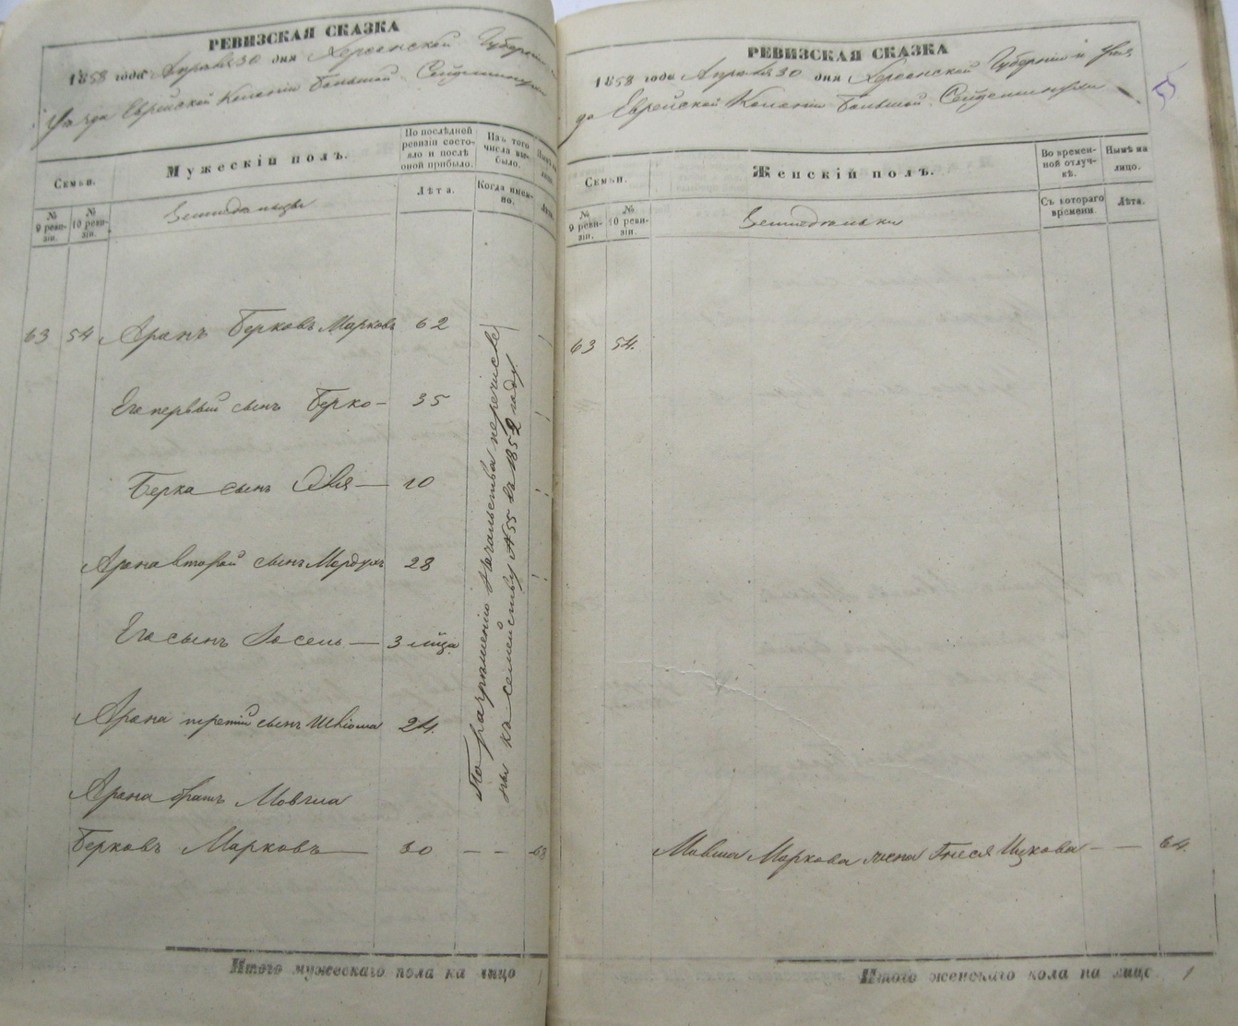 РЕВИЗСКАЯ СКАЗКА
1858 года Апреля 30 дня Херсонской Губернии
уезда Еврейской Колонии Большой Сейдеминухи
Семьи.
Мужескій полъ.
По послѣдней ревизіи состояло и послѣ оной прибыло.
Изъ того числа выбыло.
№ 9 ревизіи.
№ 10 ревизіи.
Лѣта.
Когда именно.
Лѣта.
63 54 Аронъ Берковъ Марковъ 62
Его первый сынъ Берко — 35
Берка сынъ — 10
Арона второй сынъ Мордух 28
Его сынъ Иосель — 3 мѣсяца
Арона третій сынъ Шліома 24.
Арона братъ Мовша
Берковъ Марковъ — 30 — —
По разрешению Начальства перечислены къ семейству №55 въ 1852 году
Итого мужескаго пола на лицо 1
РЕВИЗСКАЯ СКАЗКА
55
1858 года Апреля 30 дня Херсонской Губернии уез
да Еврейской Колонии Большой Сейдеминухи
Семьи.
Женскій полъ.
Во временной отлучкѣ.
Нынѣ на лицо.
№ 9 ревизіи.
№ 10 ревизіи.
Съ котораго времени.
Лѣта.
63 54.
Мовши Маркова жена Ицкова — — 64.
Итого женскаго пола на лицо 1